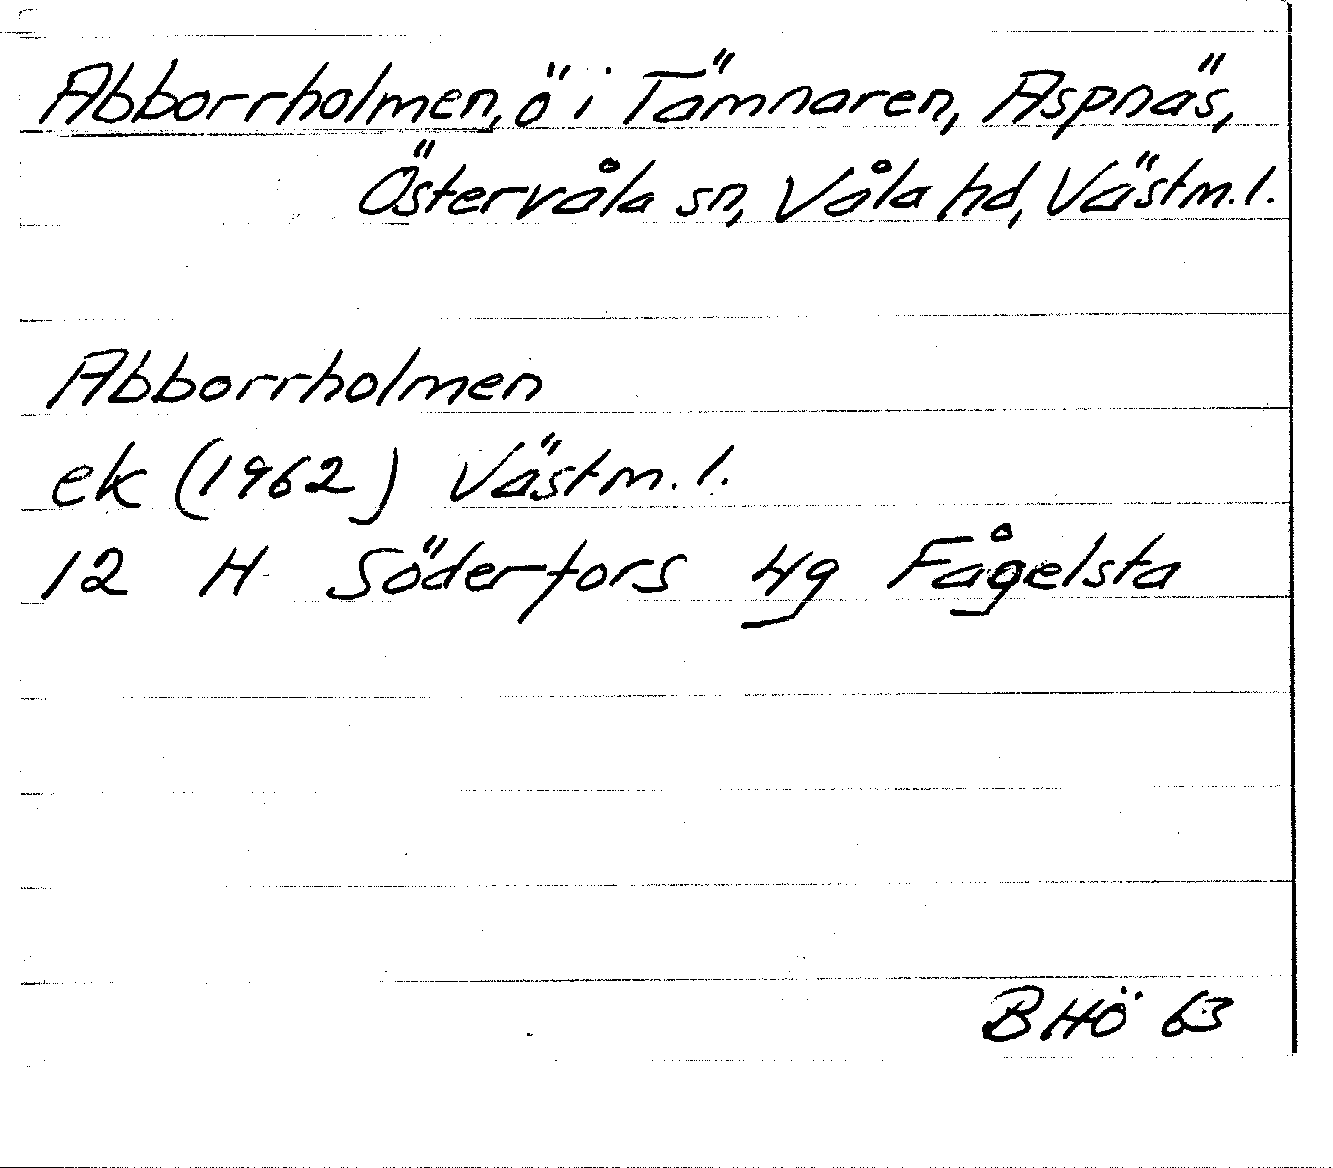 Abborrholmen, ö i Tämnaren, Aspnäs,
Östervåla sn, Våla hd, Västm. l.
Abborrholmen
ek (1962) Västm. l.
12 H Söderfors 4g Fågelsta
BHÖ 63